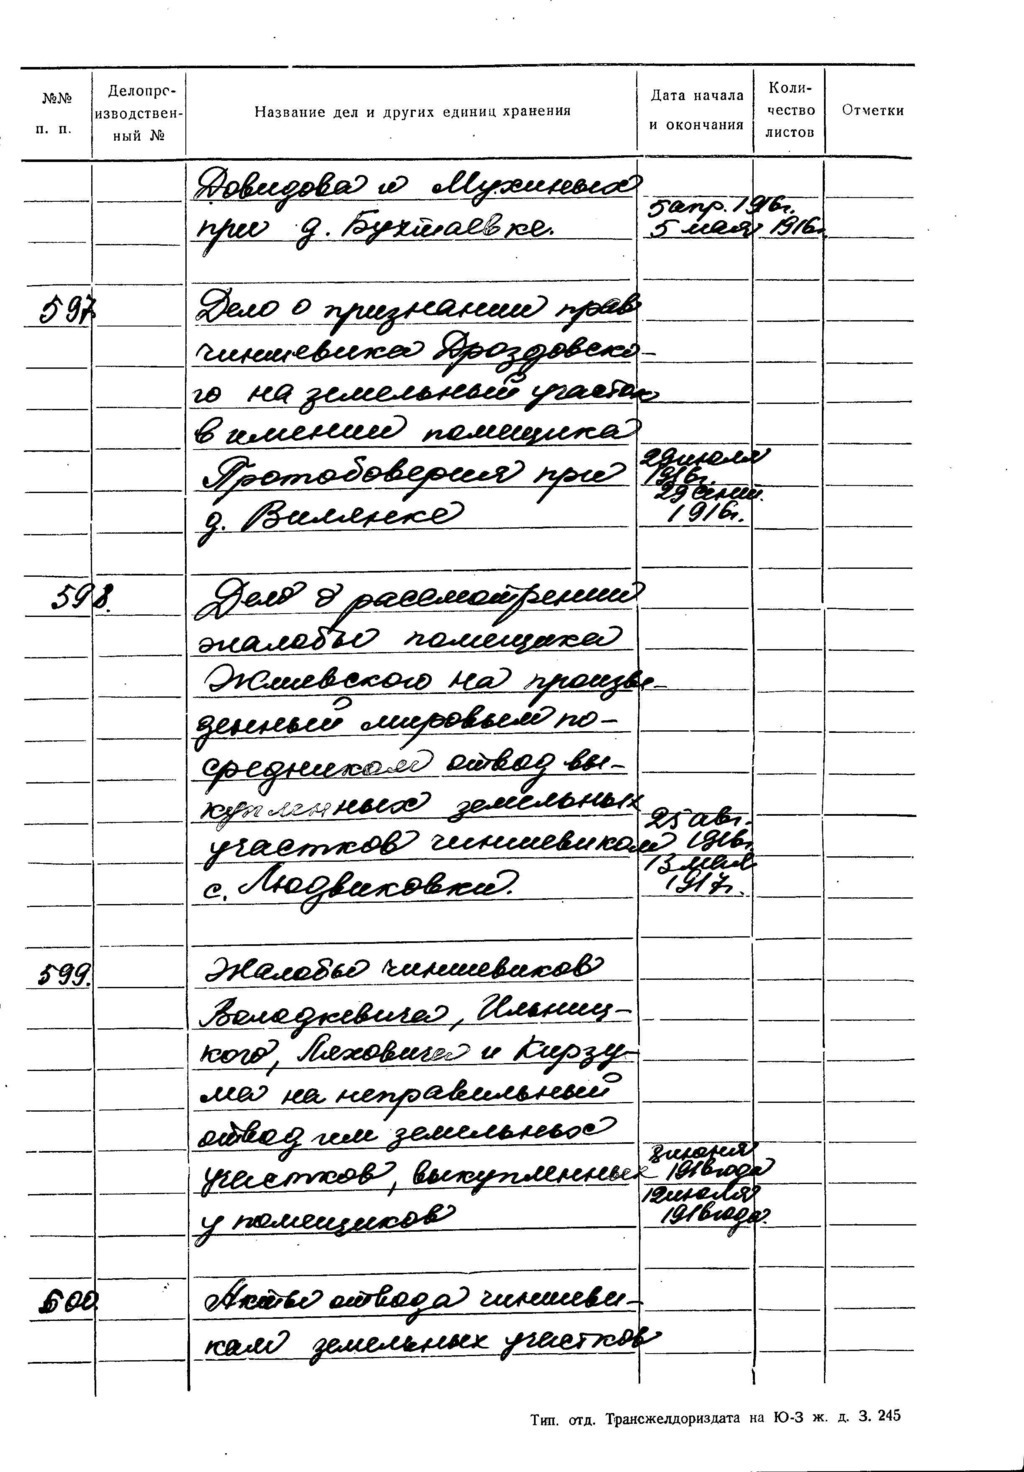 №№ п. п.
Делопро-
изводствен-
ный №
Название дел и других единиц хранения
Дата начала
и окончания
Коли-
чество
листов
Отметки
Довидова и Мухиных
при д. Бухтаевке.
5 апр. 1916г.
5 мая 1916г.
597
Дело о признании прав
чиншевика Дроздовско-
го на земельный участок
в имении помещика
Протобоверия при
д. Вилянке
29 июля
1916г.
29 сент.
1916г.
598.
Дело о рассмотрении
жалобы помещика
Жмиевского на произве-
денный мировым по-
средником отвод вы-
купленных земельных
участков чиншевикам
с. Людвиковки.
25 авг.
1916г.
13 мая
1917г.
599.
Жалобы чиншевиков
Володкевича, Ильниц-
кого, Ляховича и Кирзу-
ма на неправильный
отвод им земельных
участков, выкупленных
у помещиков
3 июня
1916 года
12 июля
1916 года.
600
Акты отвода чиншеви-
кам земельных участков
Тип. отд. Трансжелдориздата на Ю-З ж. д. З. 245